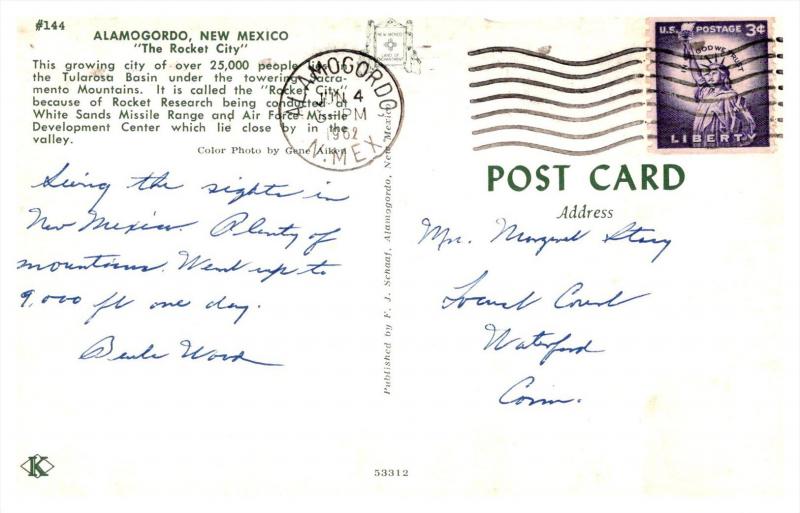 #144
ALAMOGORDO, NEW MEXICO
"The Rocket City"
This growing city of over 25,000 people lies in
the Tularosa Basin under the towering Sacra-
mento Mountains. It is called the "Rocket City"
because of Rocket Research being conducted at
White Sands Missile Range and Air Force Missile
Development Center which lie close by in the
valley.
Color Photo by Gene Aiken
Seeing the sights in
New Mexico. Plenty of
mountains. Went up to
9,000 ft one day.
Ward
K
LAND OF
ENCHANTMENT
ALAMOGORDO
JUN 4
PM
1962
N. MEX.
Published by F. J. Schaaf, Alamogordo, New Mexico
53312
U.S. POSTAGE 3¢
IN GOD WE TRUST
LIBERTY
POST CARD
Address
Margaret Stacy
Locust Court
Waterford
Conn.